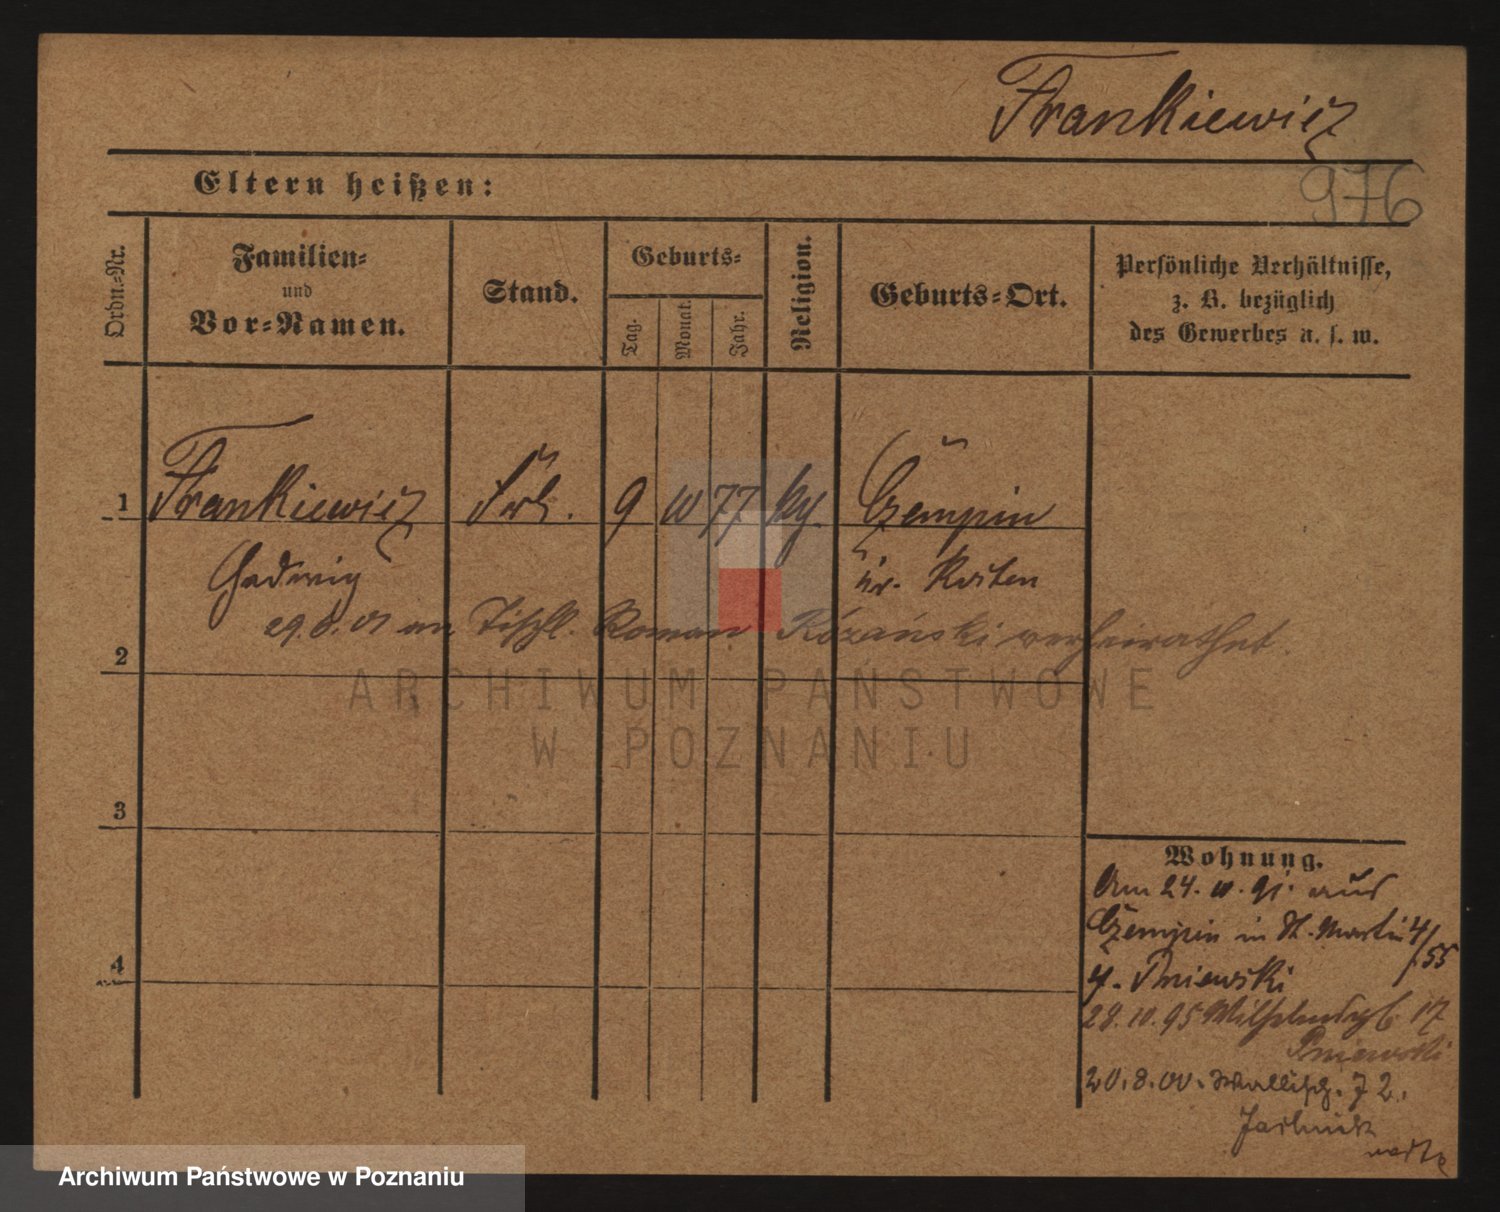 Frankiewicz
976
Eltern heißen:
Ordn.-Nr.
Familien-
und
Vor-Namen.
Stand.
Geburts-
Tag.
Monat.
Jahr.
Religion.
Geburts-Ort.
Persönliche Verhältnisse,
z. B. bezüglich
des Gewerbes u. s. w.
1 Frankiewicz 9 10 77 Czempin
Hedwig Kr. Kosten
29.6.01 an Tischl. Roman Rózański verheirathet.
2
3
4
Wohnung.
Am 24. 10. 91. aus
Czempin in St. Martin 4/55
Pniewski
28.10.95 17
Pniewski
20.8.00. Wallisch. 72.
ARCHIWUM PAŃSTWOWE
W POZNANIU
Archiwum Państwowe w Poznaniu